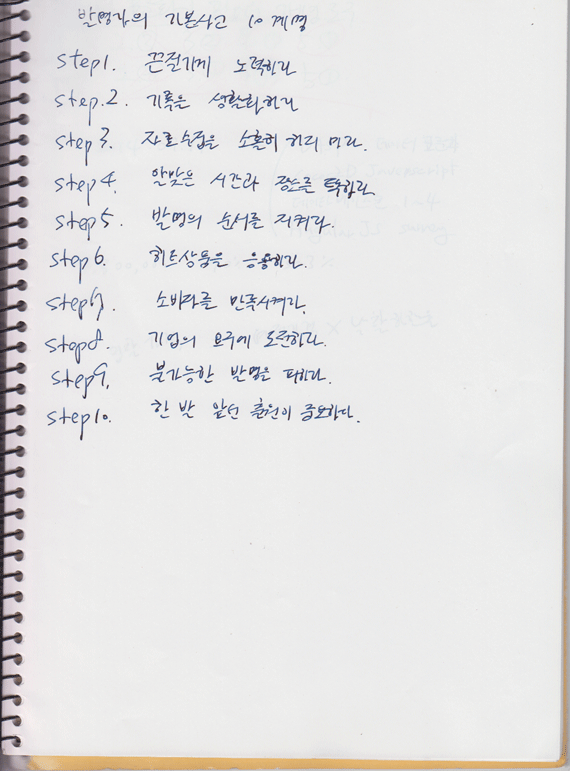 발명가의 기본사고 10계명
step1. 끈질기게 노력하라
step.2. 기록을 생활화하라
step3. 자료수집을 소홀히 하지 마라.
step4. 알맞은 시간과 장소를 택하라
step5. 발명의 순서를 지켜라.
step6. 히트상품을 응용하라.
step7. 소비자를 만족시켜라.
step8. 기업의 요구에 도전하라.
step9. 불가능한 발명은 피하라.
step10. 한 발 앞선 출원이 중요하다.